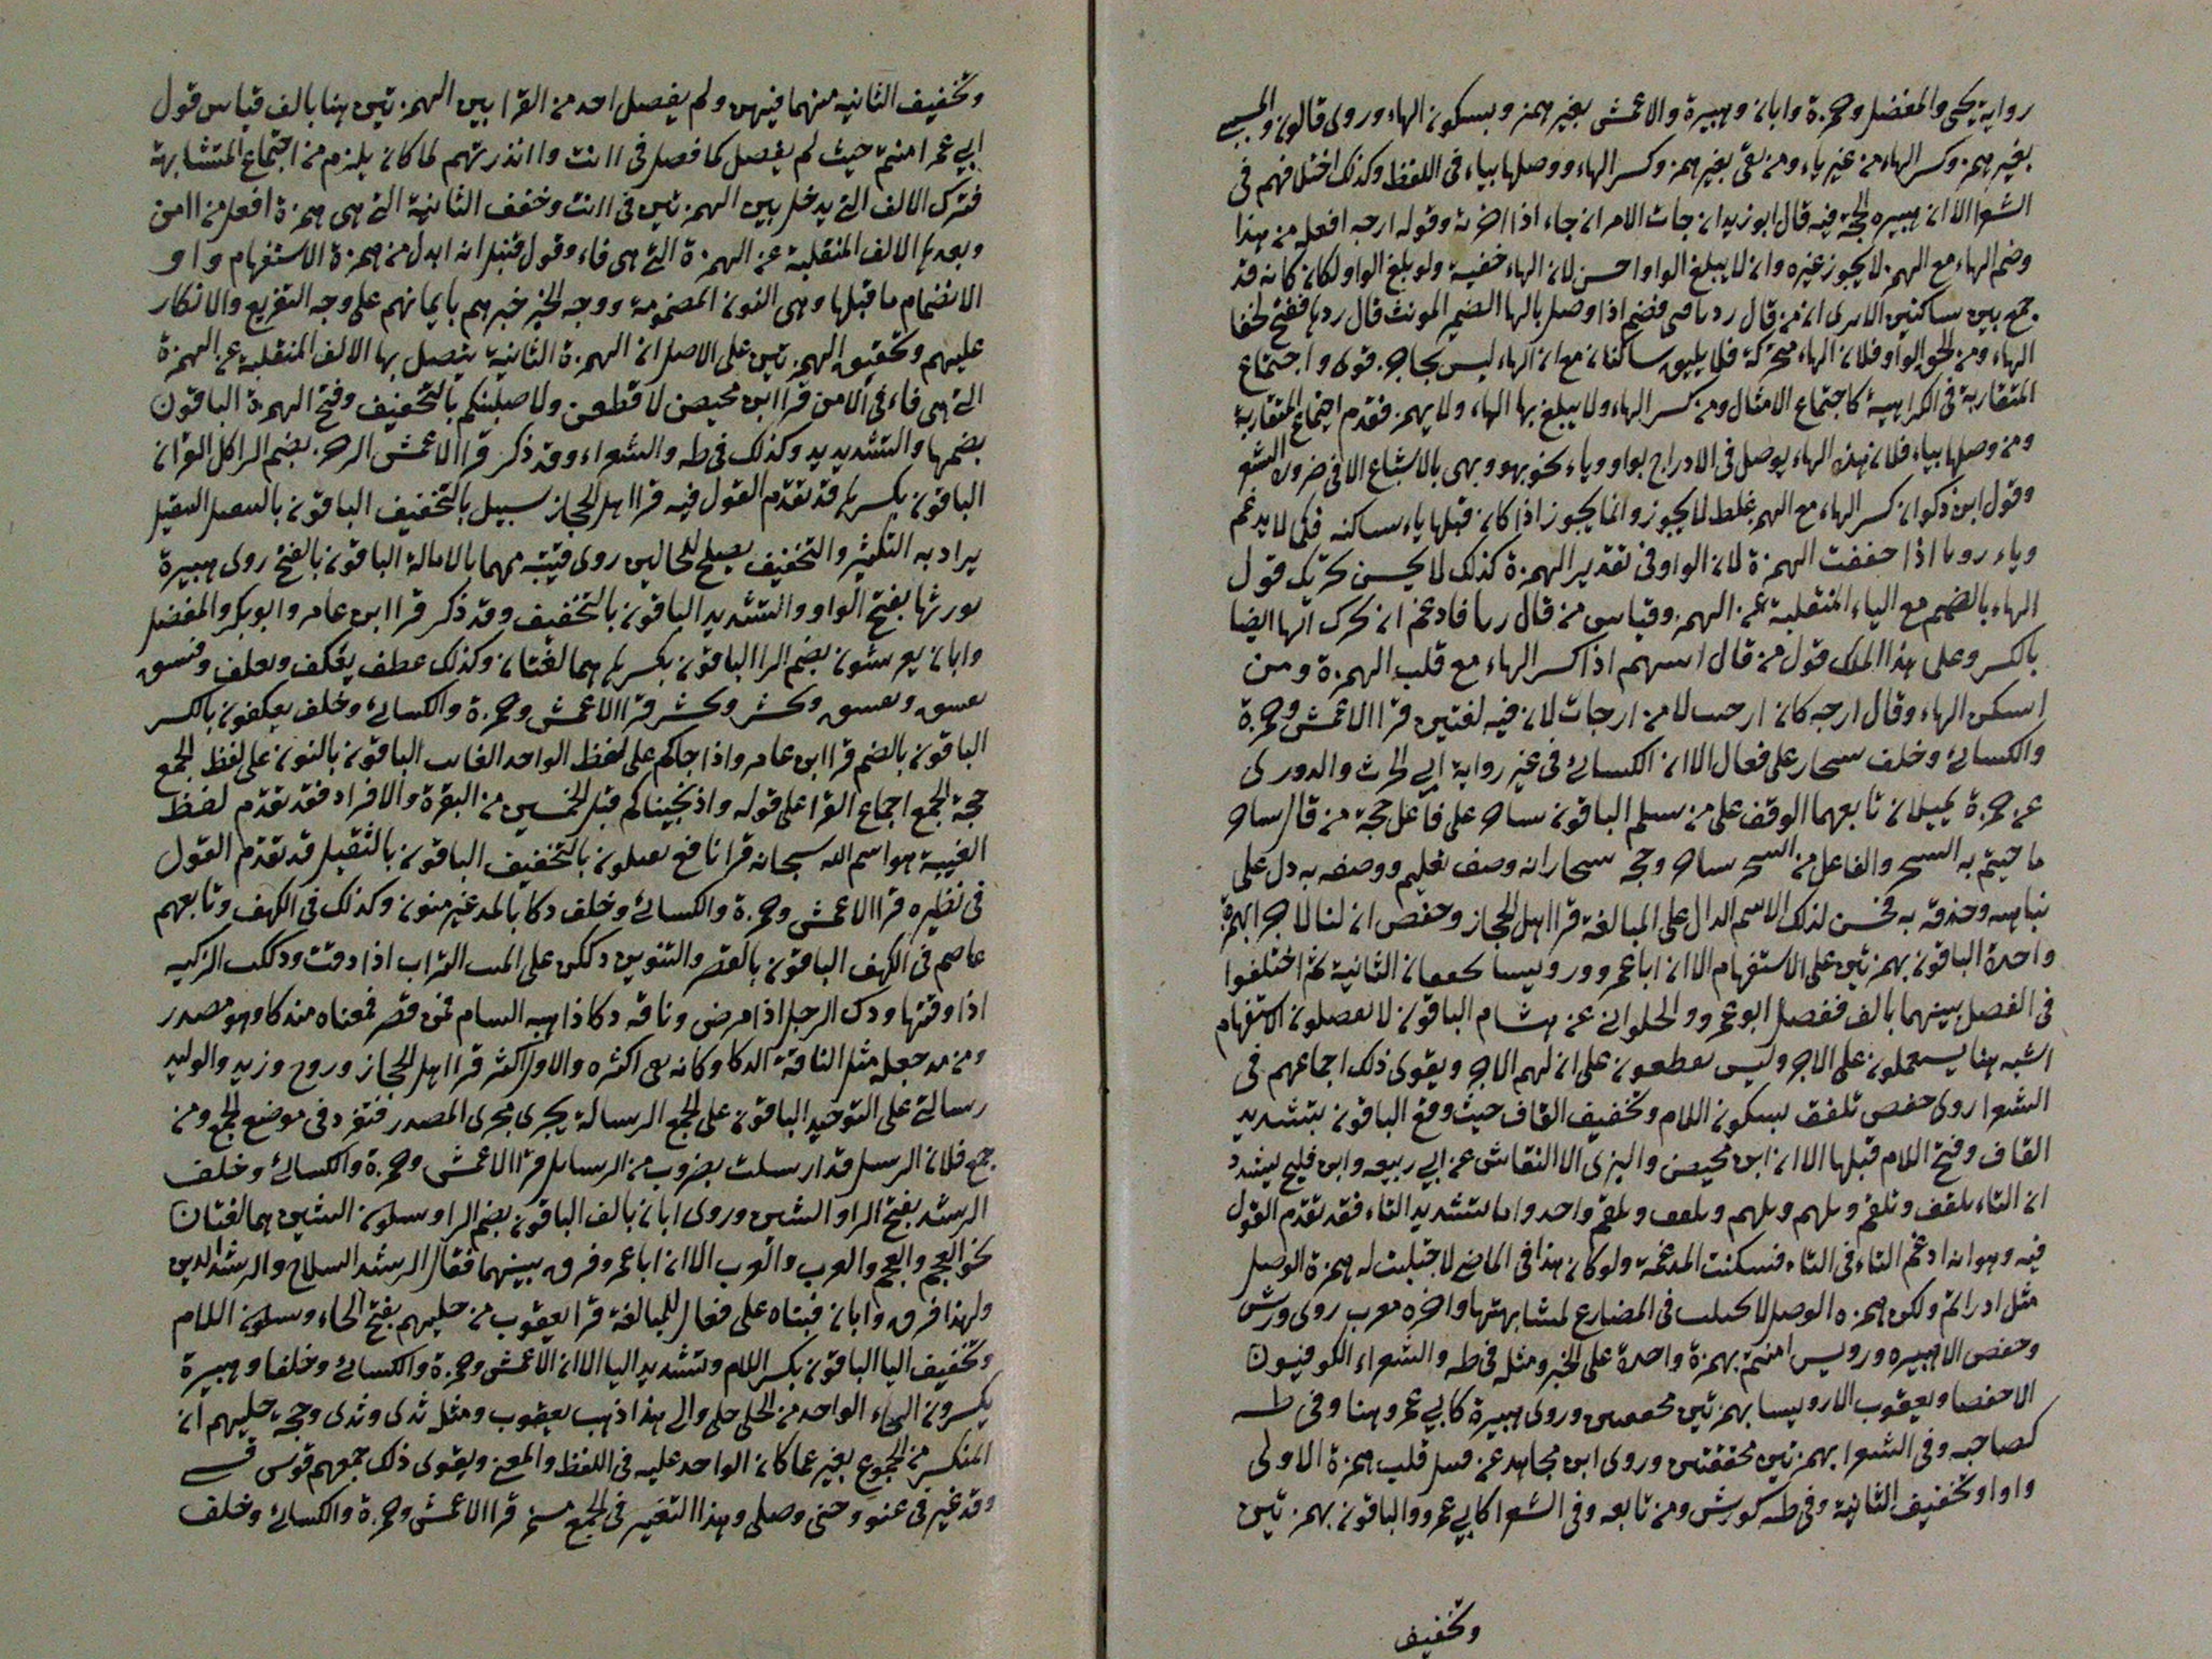 رواية يحيى والمفضل وحمزة وابان وهبيرة والاعمش بغير همز وبسكون الهاء وروى قالون والمسيبي
بغير همز وكسر الهاء من غير ياء ومن بقي بغير همز وكسر الهاء ووصلها بياء في اللفظ وكذلك اختلافهم في
الشعرا الا ان هبيره فيه قال ابو زيد ارجات الامر ارجاء اذا اخرته وقوله ارجه افعله من هذا
وضم الهاء مع الهمز لا يجوز غيره وان لا يبلغ الواو احسن لان الهاء خفية ولو بلغ الواو لكان كانه قد
جمع بين ساكنين الا يرى ان من قال رد يا فتى فضم اذا وصل بالها الضمير المونث قال ردها ففتح لخفا
الهاء ومن الحق الواو فلان الهاء متحركة فلا يليق ساكنان مع ان الهاء ليس بحاجز قوى واجتماع
المتقاربة في الكراهية كاجتماع الامثال ومن كسر الهاء ولا يبلغ بها الهاء ولا يهمز فقدم اجتماع المتقاربة
ومن وصلها بياء فلان هذه الهاء يوصل في الادراج بواو وياء نحو بهو وبهي بالاشباع الا في ضرورة الشعر
وقول ابن ذكوان كسر الهاء مع الهمز غلط لا يجوز وانما يجوز اذا كان قبلها ياء ساكنه فكما لا يدغم
وياء رويا اذا خففت الهمزة لان الواو في تقدير الهمزة كذلك لا يحسن تحريك قول
الهاء بالضم مع الياء المنقلبة عن الهمز وقياس من قال ريا فادغم ان تحرك الها ايضا
بالكسر وعلى هذا المسلك قول من قال اسهم اذا كسر الهاء مع قلب الهمزة ومن
اسكن الهاء وقال ارجه كان ارحب لا من ارجات لان فيه لغتين قرا الاعمش وحمزة
والكسائي وخلف سحار على فعال الا ان الكسائي في غير رواية ابي الحرث والدورى
عن حمزة يميلان تابعهما الوقف على من سلم الباقون ساحر على فاعل حجة من قال ساحر
ما جيتم به السحر والفاعل من السحر ساحر وحجة سحار انه وصف بعليم ووصفه به دل على
تناهيه وحذقه به فحسن لذلك الاسم الدال على المبالغة قرا اهل الحجاز وحفص ان لنا لاجرا بهمزة
واحدة الباقون بهمزتين على الاستفهام الا ان ابا عمرو ورويسا يخففان الثانية ثم اختلفوا
في الفصل بينهما بالف ففصل ابو عمرو والحلواني عن هشام الباقون لا يفصلون الاستفهام
اشبه هنا يستعملون على الاجر وليس يقطعون على ان لهم الاجر ويقوى ذلك اجماعهم في
الشعرا روى حفص تلقف بسكون اللام وتخفيف القاف حيث وقع الباقون بتشديد
القاف وفتح اللام قبلها الا ان ابن محيصن والبزى الا النقاش عن ابي ربيعه وابن فليح يشدد
ان التاء تلقف وتلقم وتلهم ويلهم ويلقف ويلقم واحد واما تشديد التاء فقد تقدم القول
فيه وهو انه ادغم التاء في التاء فسكنت المدغمة ولو كان هذا في الماضي لاجتلبت له همزة الوصل
مثل ادراتم ولكن همزه الوصل لا يجتلب في المضارع لمشابهتها واخره معرب روى ورش
وحفص الا هبيره ورويس امنتم بهمزة واحدة على الخبر ومثله في طه والشعراء الكوفيون
الا حفصا ويعقوب الا رويسا بهمزتين محققتين وروى هبيرة كابي عمرو هنا وفي طه
كصاحبه وفي الشعرا بهمزتين محققتين وروى ابن مجاهد عن قنبل قلب همزة الاولى
واوا وتخفيف الثانية وفي طه كورش ومن تابعه وفي الشعرا كابي عمرو والباقون بهمزتين
وتخفيف
وتخفيف الثانيه منهما فيهن ولم يفصل احد من القرا بين الهمزتين هنا بالف قياس قول
ابي عمرا امنتم حيث لم يفصل كما فصل في اانت واانذرتهم لما كان يلزم من اجتماع المتشابهة
فترك الالف التي يدخل بين الهمزتين في اانت وخفف الثانية التي هي همزة افعل من اامن
وبعدها الالف المنقلبة عن الهمزة التي هي فاء وقول قنبل انه ابدل من همزة الاستفهام واو
الانضمام ما قبلها وهي النون المضمومة ووجه الخبر خبرهم بايمانهم على وجه التقريع والانكار
عليهم وتحقيق الهمزتين على الاصل ان الهمزة الثانية يتصل بها الالف المنقلبة عن الهمزة
التي هي فاء في اامن قرا ابن محيصن لاقطعن ولاصلبنكم بالتخفيف وفتح الهمزة الباقون
بضمها والتشديد وكذلك في طه والشعراء وقد ذكر قرا الاعمش الرجز بضم الرا كل القران
الباقون بكسرها قد تقدم القول فيه قرا اهل الحجاز سبيل بالتخفيف الباقون بالتثقيل التثقيل
يراد به التكثير والتخفيف يصلح للحالين روى قتيبة مهما بالامالة الباقون بالفتح روى هبيرة
يورثها بفتح الواو والتشديد الباقون بالتخفيف وقد ذكر قرا ابن عامر وابو بكر والمفضل
وابان يعرشون بضم الرا الباقون بكسرها هما لغتان وكذلك عطف يعكف ويعكف وفسق
يفسق ويفسق وحشر وحشر قرا الاعمش وحمزة والكسائي وخلف يعكفون بالكسر
الباقون بالضم قرا ابن عامر واذ انجاكم على لفظ الواحد الغايب الباقون بالنون على لفظ الجمع
حجة الجمع اجماع القرا على قوله واذ نجيناكم قبل الخمسين من البقرة والافراد فقد تقدم لفظ
الغيبة هو اسم الله سبحانه قرا نافع يقتلون بالتخفيف الباقون بالتثقيل قد تقدم القول
في نظيره قرا الاعمش وحمزة والكسائي وخلف دكا بالمد غير منون وكذلك في الكهف وتابعهم
عاصم في الكهف الباقون بالقصر والتنوين دككت على الميت التراب اذا دفنت ودككت الركيه
اذا دفنتها ودك الرجل اذا مرض وناقه دكا ذاهبه السنام فمن قصر فمعناه مندكا وهو مصدر
ومن مد جعله مثل الناقة الدكا وكانه بقى اكثره والاول اكثر قرا اهل الحجاز وروح وزيد والوليد
رسالتي على التوحيد الباقون على الجمع الرسالة يجرى مجرى المصدر فتفرد في موضع الجمع ومن
جمع فلان الرسل قد ارسلت بضروب من الرسايل قرا الاعمش وحمزة والكسائي وخلف
الرشد بفتح الرا والشين وروى ابان بالف الباقون بضم الرا وسكون الشين هما لغتان
نحو العجم والعجم والعرب والعرب الا ان ابا عمرو فرق بينهما فقال الرشد السلاح والرشد الدين
ولهذا فرق وابان فبناه على فعال للمبالغة قرا يعقوب من حليهم بفتح الحاء وسكون اللام
وتخفيف اليا الباقون بكسر اللام وتشديد اليا الا ان الاعمش وحمزة والكسائي وخلفا وهبيرة
يكسرون الحاء الواحد من الحلي حلي والى هذا ذهب يعقوب ومثل ثدى وثدى وحجة حليهم ان
المنكسر من الجموع بغير عما كان الواحد عليه في اللفظ والمعنى ويقوى ذلك جمعهم قوس قسي
وقد غير في عتو وحني وصلي وهذا التغير في الجمع قرا الاعمش وحمزة والكسائي وخلف